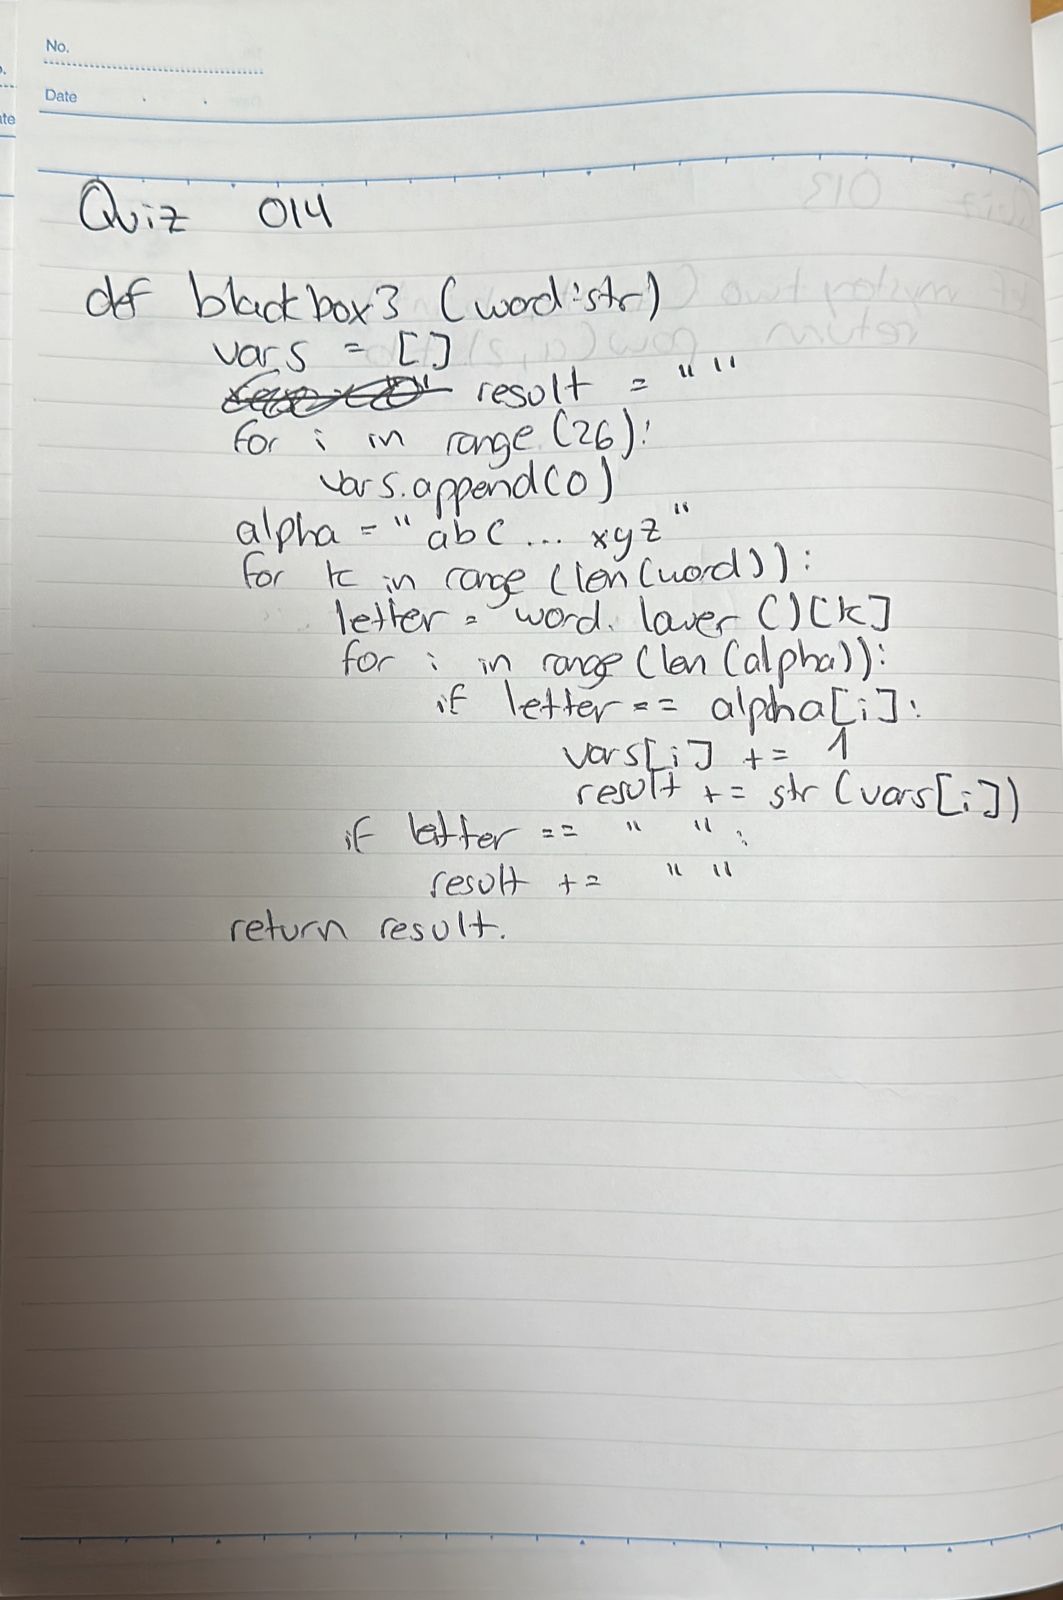 No.
Date
Quiz 014
def blackbox3 (word:str)
vars = []
result = " "
for i in range (26):
vars.append(0)
alpha = "abc ... xyz"
for k in range (len(word)):
letter = word. lower ()[k]
for i in range (len (alpha)):
if letter == alpha[i]:
vars[i] += 1
result += str (vars[i])
if letter == " ":
result += " "
return result.